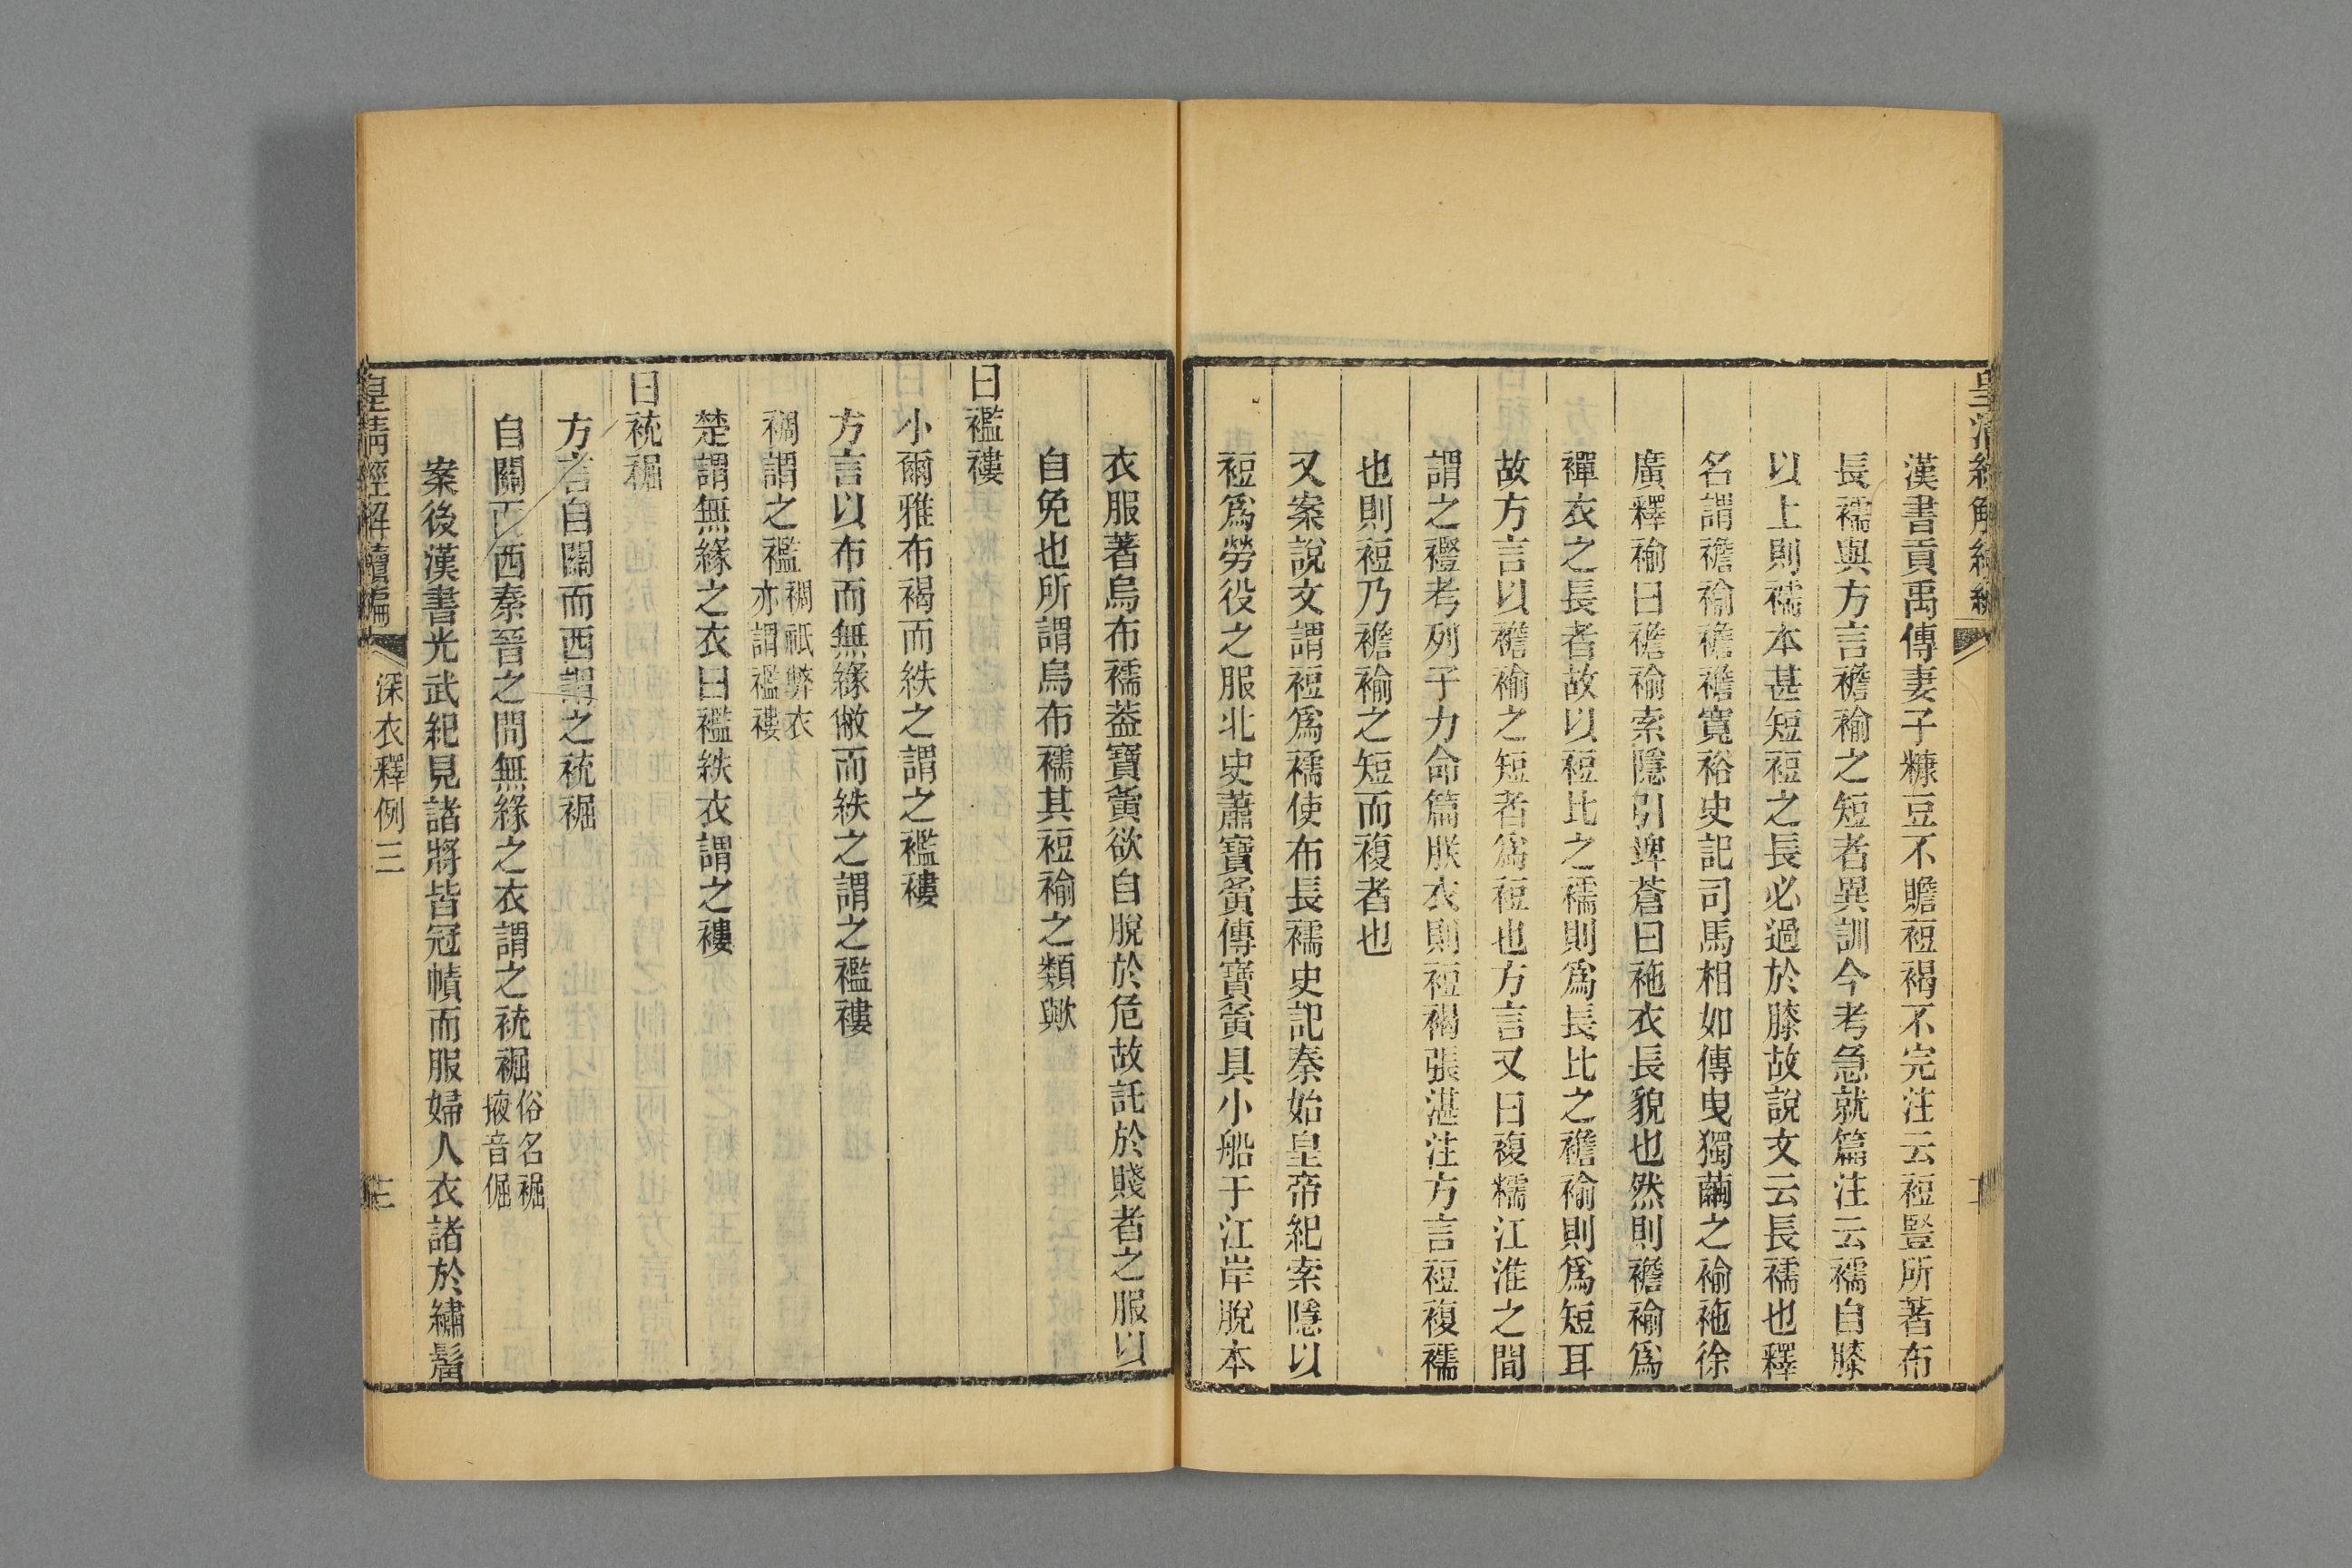 漢書貢禹傳妻子糠豆不贍裋褐不完注云裋豎所著布
長襦與方言襜褕之短者異訓今考急就篇注云襦自膝
以上則襦本甚短裋之長必過於膝故說文云長襦也釋
名謂襜褕襜襜寬裕史記司馬相如傳曳獨繭之褕袘徐
廣釋褕曰襜褕索隱引埤蒼曰袘衣長貌也然則襜褕爲
襌衣之長者故以裋比之襦則爲長比之襜褕則爲短耳
故方言以襜褕之短者爲裋也方言又曰複襦江淮之間
謂之䙱考列子力命篇朕衣則裋褐張湛注方言裋複襦
也則裋乃襜褕之短而複者也
又案說文謂裋爲襦使布長襦史記秦始皇帝紀索隱以
裋爲勞役之服北史蕭寶夤傳寶夤具小船于江岸脫本
衣服著烏布襦葢寶夤欲自脫於危故託於賤者之服以
自免也所謂烏布襦其裋褕之類歟
曰襤褸
小爾雅布褐而紩之謂之襤褸
方言以布而無緣敝而紩之謂之襤褸
裯謂之襤裯祇弊衣亦謂襤褸
楚謂無緣之衣曰襤紩衣謂之褸
曰裗裾
方言自關而西謂之裗裾
自關而西秦晉之間無緣之衣謂之裗裾俗名裾掖音倔
案後漢書光武紀見諸將皆冠幘而服婦人衣諸於繡䘿
皇清經解續編
深衣釋例三